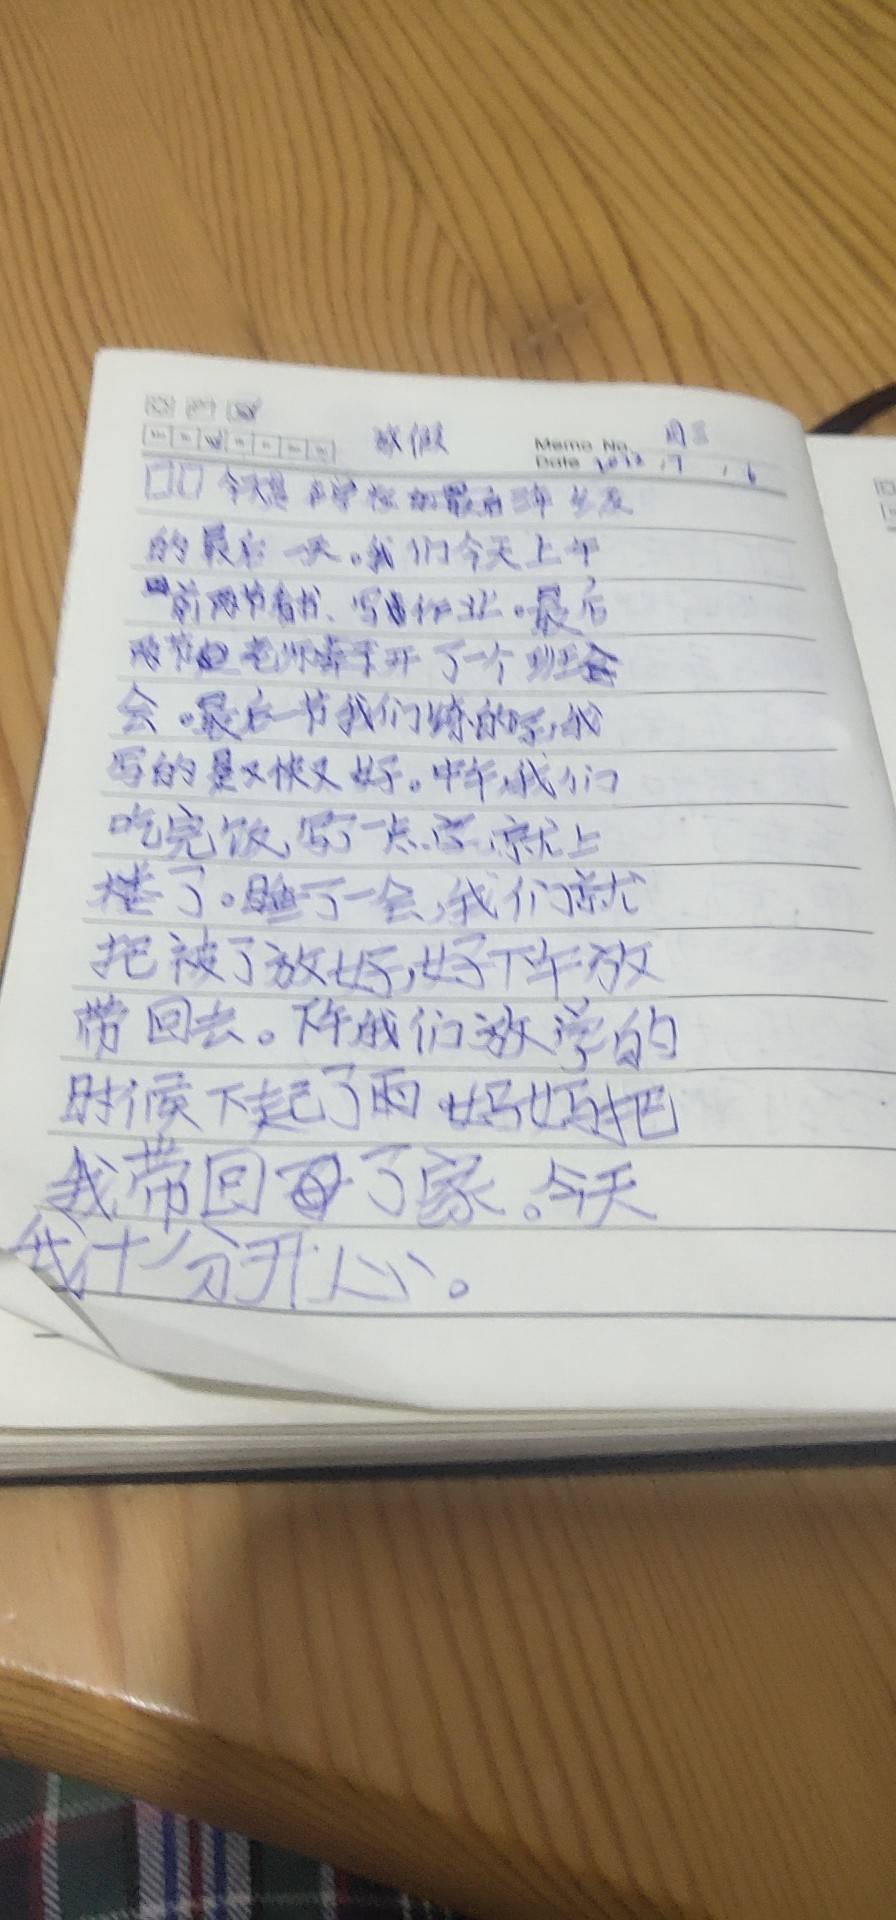 放假
周三
Memo No.
Date 2022 . 7 . 6
今天是在学校的最后三年
的最后一天。我们今天上午
前两节看书、写作业。最后
两节老师开了一个班
会。最后一节我们练的字,我
写的是又快又好。中午,我们
吃完饭,写了一点字,就上
楼了。睡了一会,我们就
把被子放好,好下午放
带回去。下午我们放学的
时候下起了雨 妈妈把
我带回了家。今天
我十分开心。